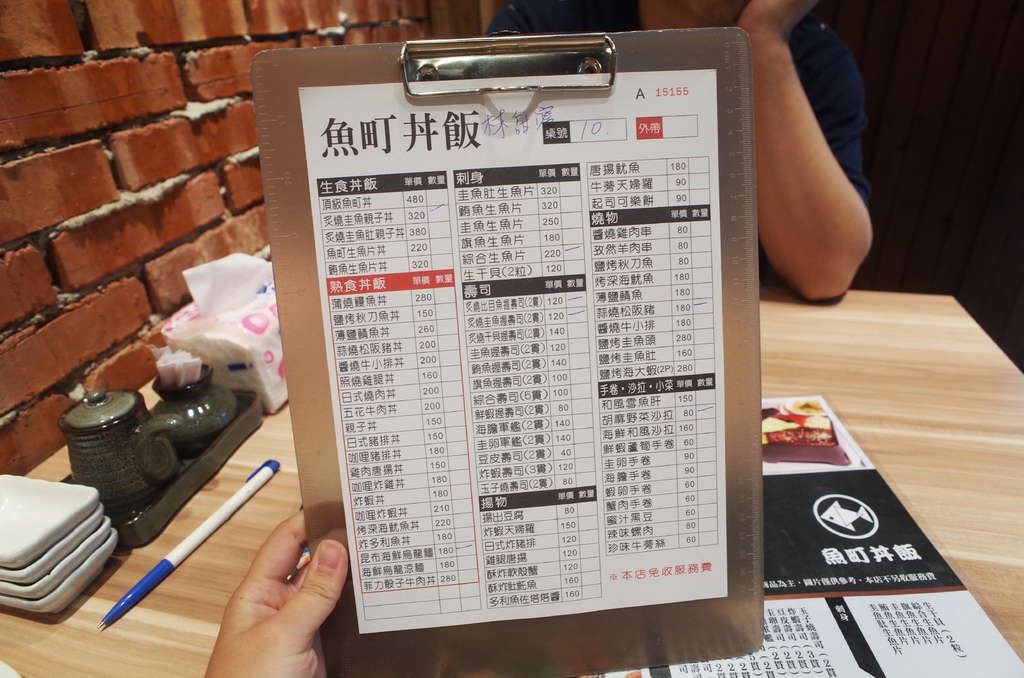 A 15155
魚町丼飯
桌號 10.
外帶
生食丼飯 單價 數量
頂級魚町丼 480
炙燒圭魚親子丼 320
炙燒圭魚肚親子丼 380
魚町生魚片丼 220
鮪魚生魚片丼 320
熟食丼飯 單價 數量
蒲燒鰻魚丼 280
鹽烤秋刀魚丼 150
薄鹽鯖魚丼 260
蒜燒松阪豬丼 200
醬燒牛小排丼 200
照燒雞腿丼 160
日式燒肉丼 200
五花牛肉丼 200
親子丼 150
日式豬排丼 150
咖哩豬排丼 180
雞肉唐揚丼 150
咖哩炸雞丼 180
炸蝦丼 180
咖哩炸蝦丼 210
烤深海魷魚丼 220
炸多利魚丼 180
昆布海鮮烏龍麵 180
海鮮烏龍涼麵 180
菲力骰子牛肉丼 280
刺身 單價 數量
圭魚肚生魚片 320
鮪魚生魚片 320
圭魚生魚片 250
旗魚生魚片 180
綜合生魚片 220
生干貝(2粒) 120
壽司 單價 數量
炙燒比目魚握壽司(2貫) 120
炙燒圭魚握壽司(2貫) 120
炙燒干貝握壽司(2貫) 140
圭魚握壽司(2貫) 120
鮪魚握壽司(2貫) 140
旗魚握壽司(2貫) 100
綜合壽司(5貫) 180
鮮蝦握壽司(2貫) 80
海膽軍艦(2貫) 140
圭卵軍艦(2貫) 140
豆皮壽司(2貫) 40
炸蝦壽司(3貫) 120
玉子燒壽司(2貫) 80
揚物 單價 數量
揚出豆腐 80
炸蝦天婦羅 150
日式炸豬排 120
雞腿唐揚 120
酥炸軟殼蟹 120
酥炸肚魠魚 120
多利魚佐塔塔醬 160
唐揚魷魚 180
牛蒡天婦羅 90
起司可樂餅 90
燒物 單價 數量
醬燒雞肉串 80
孜然羊肉串 80
鹽烤秋刀魚 80
烤深海魷魚 180
薄鹽鯖魚 180
蒜燒松阪豬 180
醬燒牛小排 180
鹽烤圭魚頭 280
鹽烤圭魚肚 160
鹽烤海大蝦(2P) 280
手卷·沙拉·小菜 單價 數量
和風雲魚肝 150
胡麻野菜沙拉 80
海鮮和風沙拉 160
鮮蝦蘆筍手卷 60
圭卵手卷 90
海膽手卷 90
蝦卵手卷 60
蟹肉手卷 60
蜜汁黑豆 60
辣味螺肉 80
珍味牛蒡絲 60
※本店免收服務費
魚町丼飯
商品為主，圖片僅供參考，本店不另收服務費
刺身